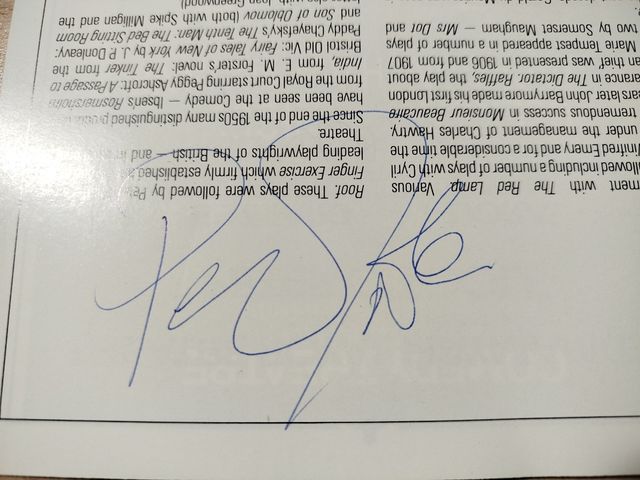 ment with The Red Lamp. Various
followed including a number of plays with Cyril
Winifred Emery and for a considerable time the
under the management of Charles Hawtry,
tremendous success in Monsieur Beaucaire
years later John Barrymore made his first London
arance in The Dictator. Raffles, the play about
an thief' was presented in 1906 and from 1907
Marie Tempest appeared in a number of plays
two by Somerset Maugham — Mrs Dot and
Roof. These plays were followed by
Finger Exercise which firmly established
leading playwrights of the British — and in
Theatre.
Since the end of the 1950s many distinguished
have been seen at the Comedy — Ibsen's Rosmersholm
from the Royal Court starring Peggy Ashcroft: A Passage to
India, from E. M. Forster's novel: The Tinker from the
Bristol Old Vic: Fairy Tales of New York by J. P. Donleavy:
Paddy Chayefsky's The Tenth Man: The Bed Sitting Room
and Son of Oblomov (both with Spike Milligan and the